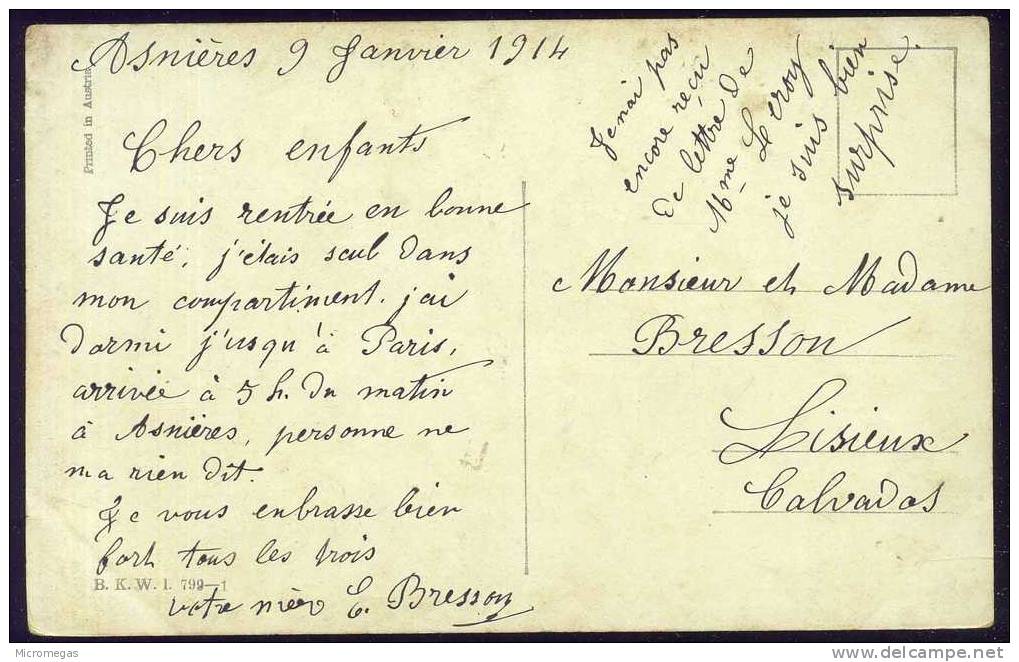 Asnières 9 Janvier 1914
Chers enfants
Je suis rentrée en bonne
santé, j'étais seul dans
mon compartiment. j'ai
dormi j'usqu'à Paris,
arrivée à 5 h. du matin
à Asnières, personne ne
m a rien dit.
Je vous enbrasse bien
fort tous les trois
votre mère C. Bresson
Je nai pas
encore reçu
de lettre de
Mme Leroy
je suis bien
surprise.
Monsieur et Madame
Bresson
Lisieux
Calvados
Printed in Austria
B. K. W. I. 799—1
Micromegas
www.delcampe.net